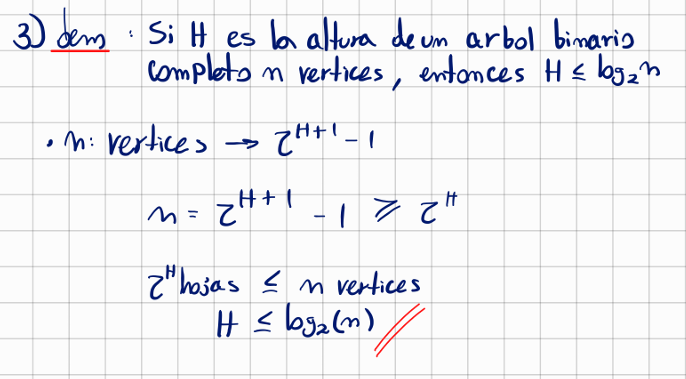 3) dem : Si H es la altura de un arbol binario
completo n vertices, entonces H ≤ log₂n
• n: vertices → 2^{H+1} - 1
n = 2^{H+1} - 1 ≥ 2^H
2^H hojas ≤ n vertices
H ≤ log₂(n) //